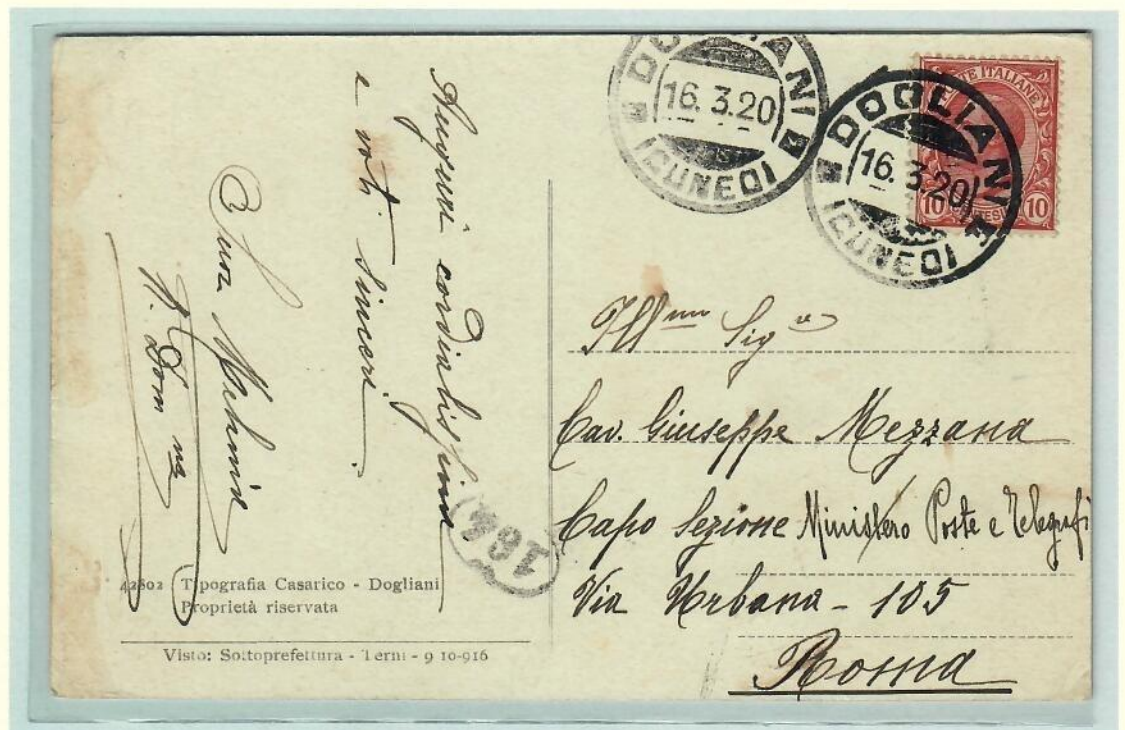 Auguri cordialissimi
e voti sinceri.
Sua
DOGLIANI
16.3.20
(CUNEO)
DOGLIANI
16.3.20
(CUNEO)
POSTE ITALIANE
10 CENTESIMI 10
Ill mo Sig re
Cav. Giuseppe Mezzana
Capo Sezione Ministero Poste e Telegrafi
Via Urbana - 105
Roma
184
42802 Tipografia Casarico - Dogliani
Proprietà riservata
Visto: Sottoprefettura - Terni - 9 10-916